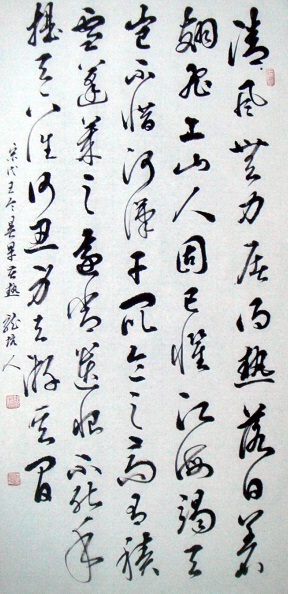 清風無力屠得熱落日着
翅飛上山人固已懼江海竭天
豈不惜河漢干昆侖之高有積
雪蓬萊之遠常遺恨不能手
提天下往何忍身去游其間
宋代王令暑旱苦熱